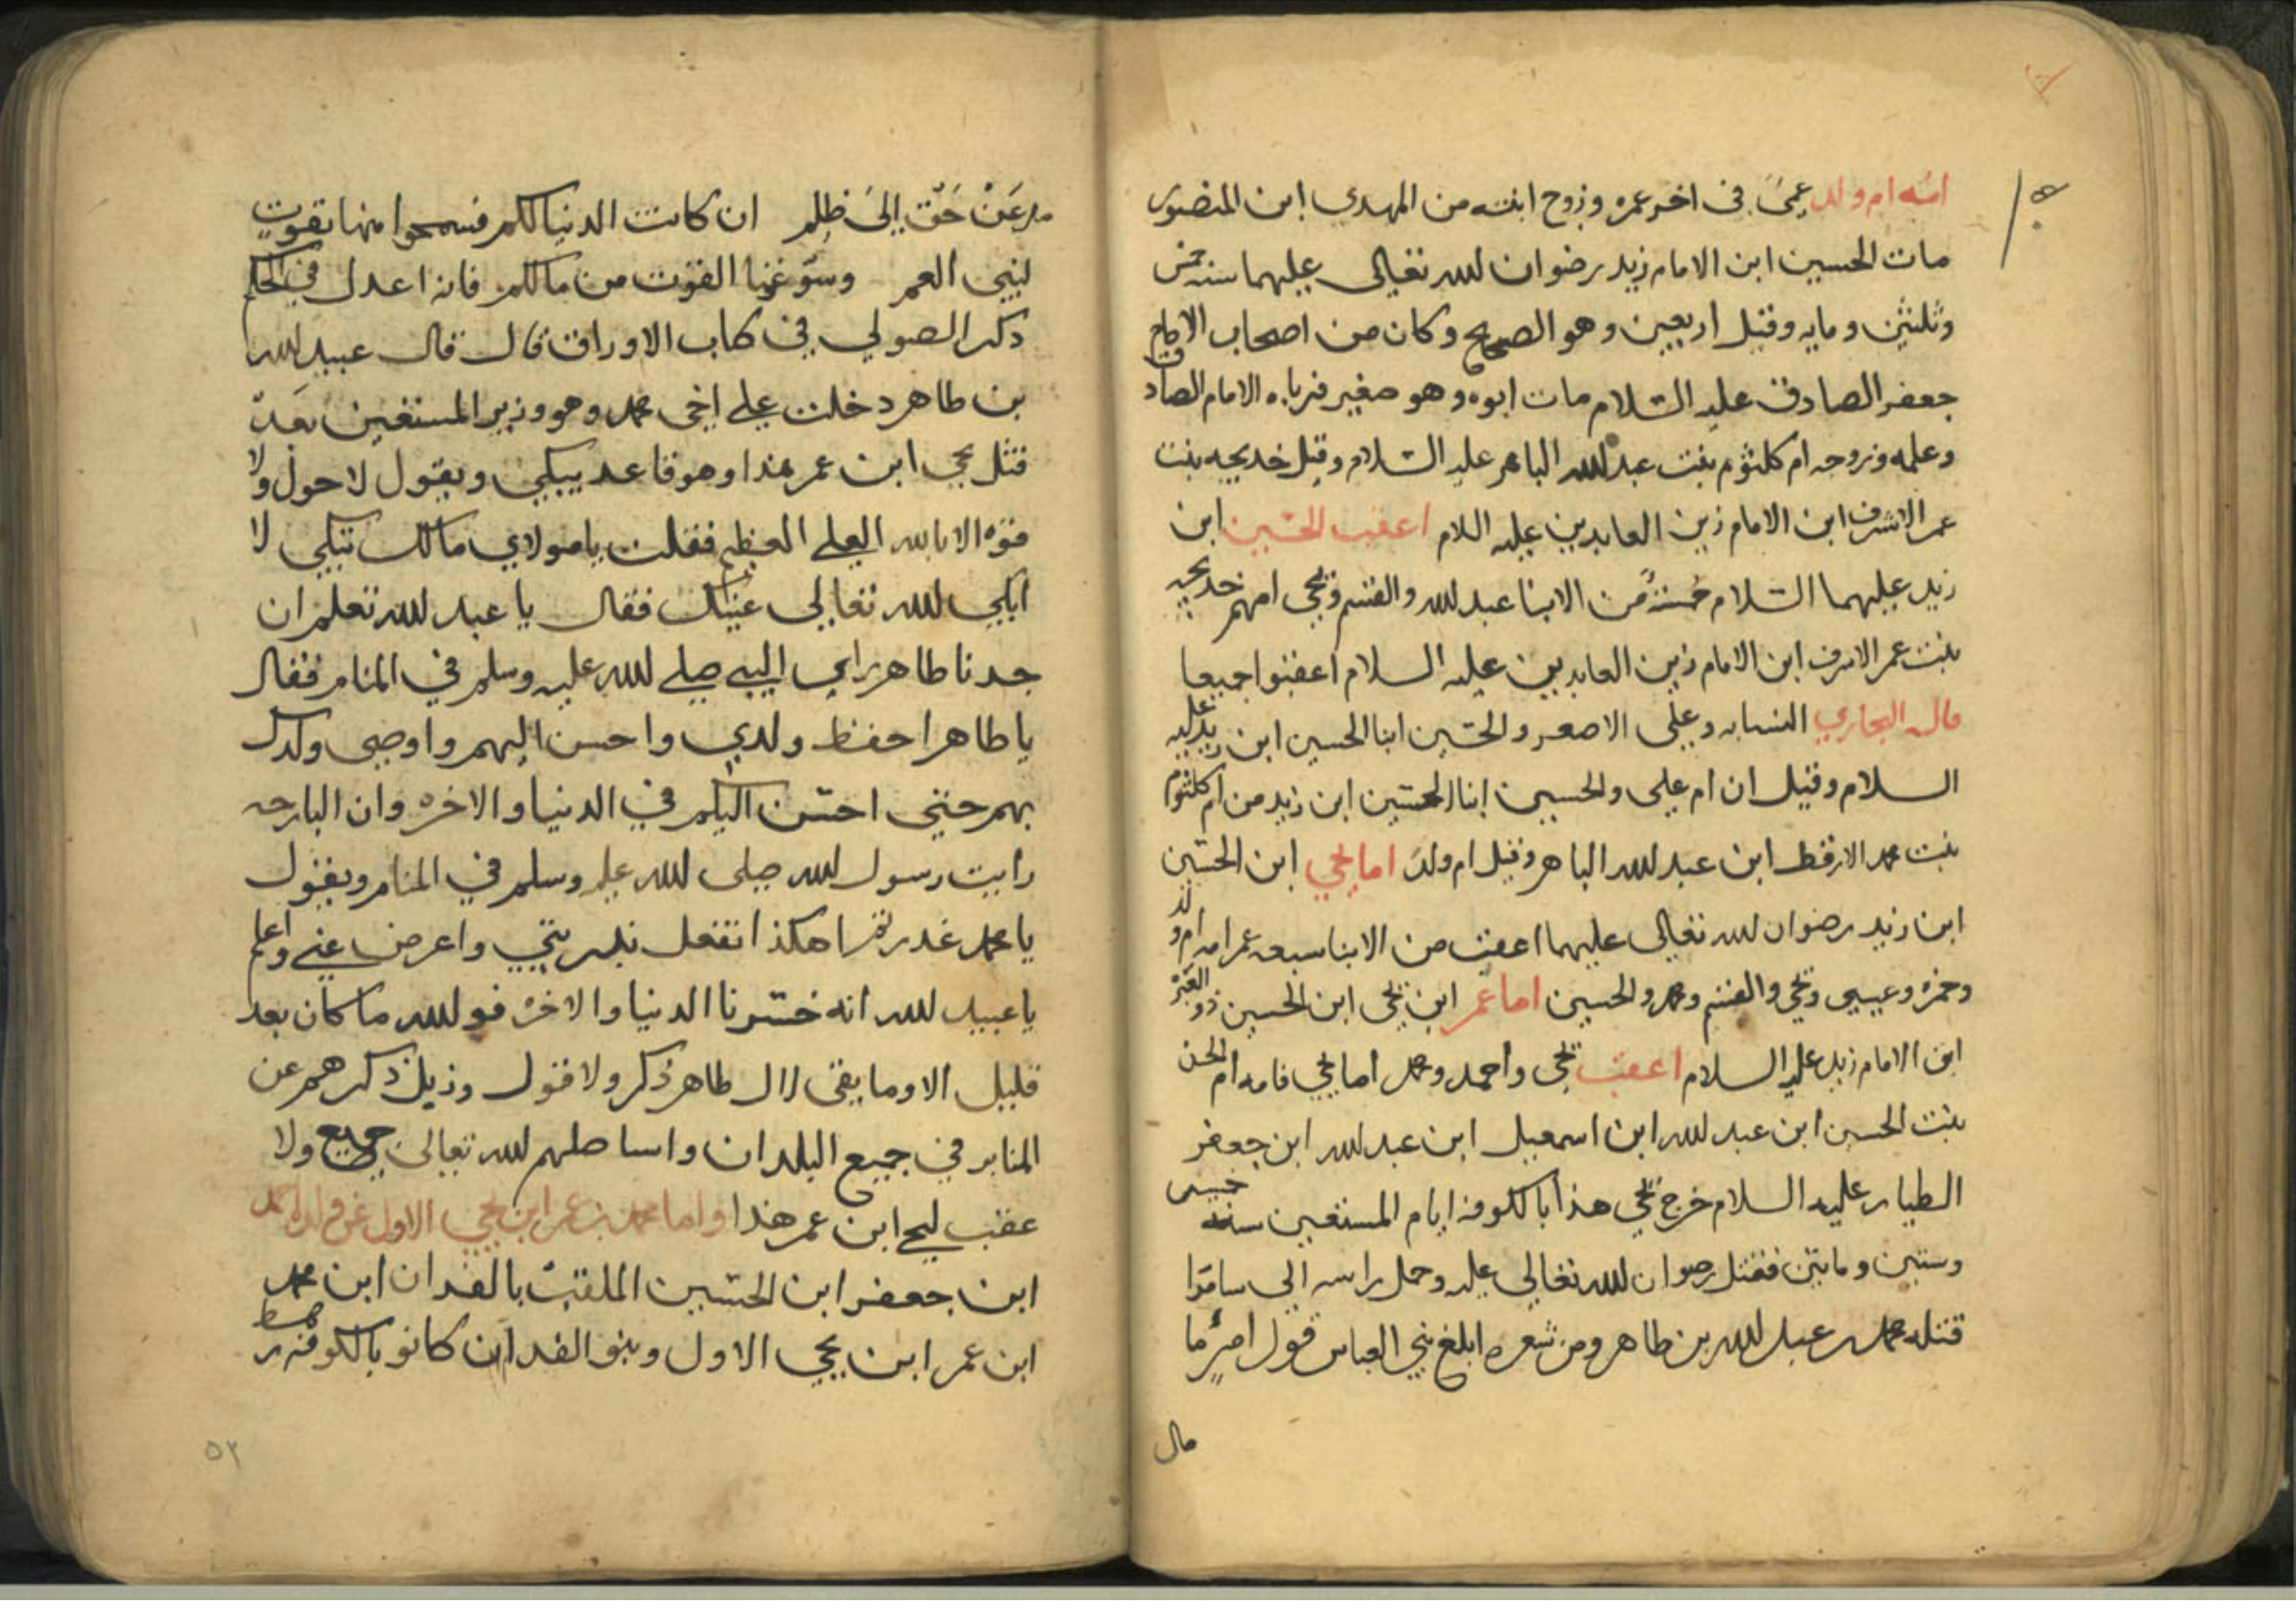 امه ام ولد عمى في اخر عمره وزوج ابنته من المهدي ابن المنصور
مات الحسين ابن الامام زيد رضوان الله تعالى عليهما سنه خمس
وثلثين ومايه وقيل اربعين وهو الصحيح وكان من اصحاب الامام
جعفر الصادق عليه السلام مات ابوه وهو صغير فرباه الامام الصادق
وعلمه وزوجه ام كلثوم بنت عبد الله الباهر عليه السلام وقيل خديجه بنت
عمر الاشرف ابن الامام زين العابدين عليه اللام اعقب الحسين ابن
زيد عليهما السلام خمسة من الابنا عبد الله والقسم ويحيى امهم خديجه
بنت عمر الاشرف ابن الامام زين العابدين عليه السلام اعقبوا جميعا
قال البخاري النسابه وعلى الاصغر والحسين ابنا الحسين ابن زيد عليه
السلام وقيل ان ام على والحسين ابنا الحسين ابن زيد من ام كلثوم
بنت محمد الارقط ابن عبد الله الباهر وقيل ام ولد اما يحيي ابن الحسين
ابن زيد رضوان الله تعالى عليهما اعقب من الابنا سبعه عمر امه ام ولد
وحمزه وعيسى ويحيى والقسم ومحمد والحسين اما عمر ابن يحيى ابن الحسين ذو العبرة
ابن الامام زيد عليه السلام اعقب يحيى واحمد ومحمد اما يحيى فامه ام الحسن
بنت الحسين ابن عبد الله ابن اسمعيل ابن عبد الله ابن جعفر
الطيار عليه السلام خرج يحيى هذا بالكوفه ايام المستعين سنه خمس
وستين ومايتين فقتل رضوان الله تعالى عليه وحمل راسه الى سامرا
قتله محمد بن عبد الله بن طاهر ومن شعره ابلغ بني العباس قول امرء ما
مال
مال عن حق الى ظلم ان كانت الدنيا لكم فسمحوا منها بقوت
لبني العم وسوغونا القوت من مالكم فانه اعدل في الحكم
ذكر الصولي في كتاب الاوراق قال قال عبيد الله
بن طاهر دخلت على اخي محمد وهو وزير المستعين بعد
قتل يحيى ابن عمر هذا وهو قاعد يبكي ويقول لا حول ولا
قوه الا بالله العلي العظيم فقلت يا مولاي مالك تبكي لا
ابكي الله تعالى عينيك فقال يا عبد الله تعلم ان
جدنا طاهر راى النبي صلى الله عليه وسلم في المنام فقال
يا طاهر احفظ ولدي واحسن اليهم واوصى ولدك
بهم حتى احسن اليكم في الدنيا والاخره وان البارحه
رايت رسول الله صلى الله عليه وسلم في المنام ويقول
يا محمد غدرتم هكذا تفعل بذريتي واعرض عني واعلم
يا عبيد الله انه خسرنا الدنيا والاخره فوالله ما كان بعد
قليل الا وما بقى لال طاهر ذكر ولا قول وزيل ذكرهم عن
المنابر في جميع البلدان واساصلهم الله تعالى جميع ولا
عقب ليحيى ابن عمر هذا واما محمد بن عمر ابن يحيى الاول عن ولد احمد
ابن جعفر ابن الحسين الملقب بالفدان ابن محمد
ابن عمر ابن يحيى الاول وبنو الفدان كانو بالكوفه رهط
٥٢